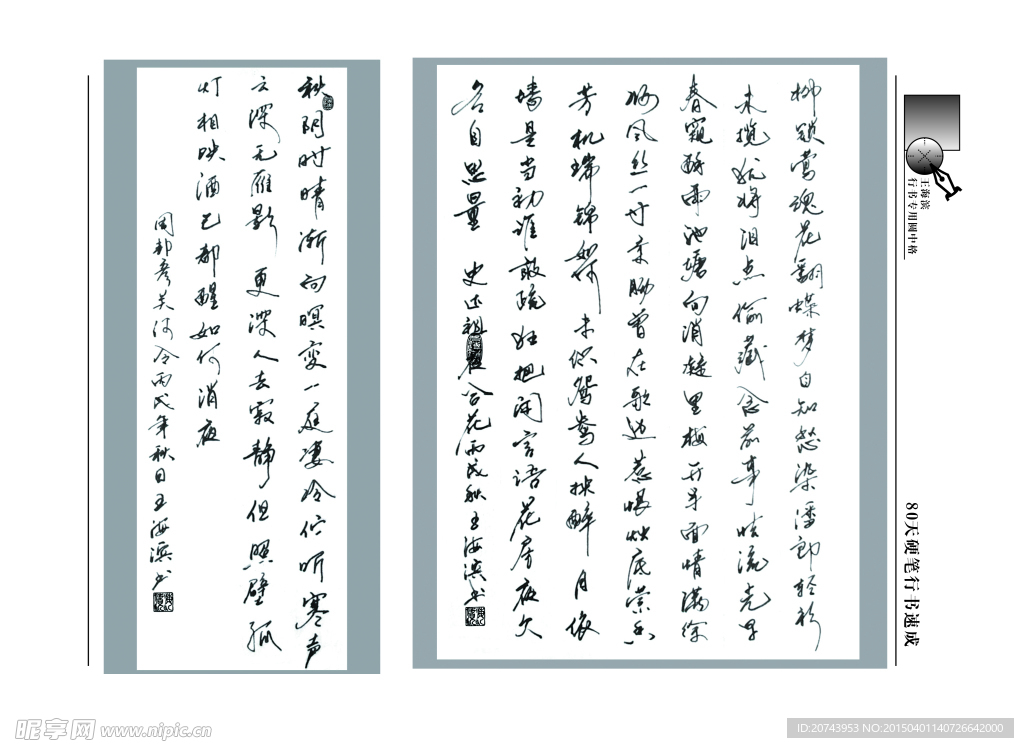 王海滨
行书专用圆中格
80天硬笔行书速成
柳锁莺魂花翻蝶梦自知愁染潘郎轻衫
未揽犹将泪点偷藏念前事怯流光早
春窥酥雨池塘向消凝里梅开半面情满徐
妆风丝一寸柔肠曾在歌边惹恨烛底萦香
芳机瑞锦如何未织鸳鸯人扶醉 月依
墙是当初谁敢疏狂把闲言语花房夜久
各自思量 史达祖 合花丙戌秋王海滨书
秋阴时晴渐向暝变一庭凄冷伫听寒声
云深无雁影 更深人去寂静但照壁孤
灯相映酒已都醒如何消夜
周邦彦关河令丙戌年秋日王海滨书
昵享网 www.nipic.cn
ID:20743953 NO:20150401140726642000